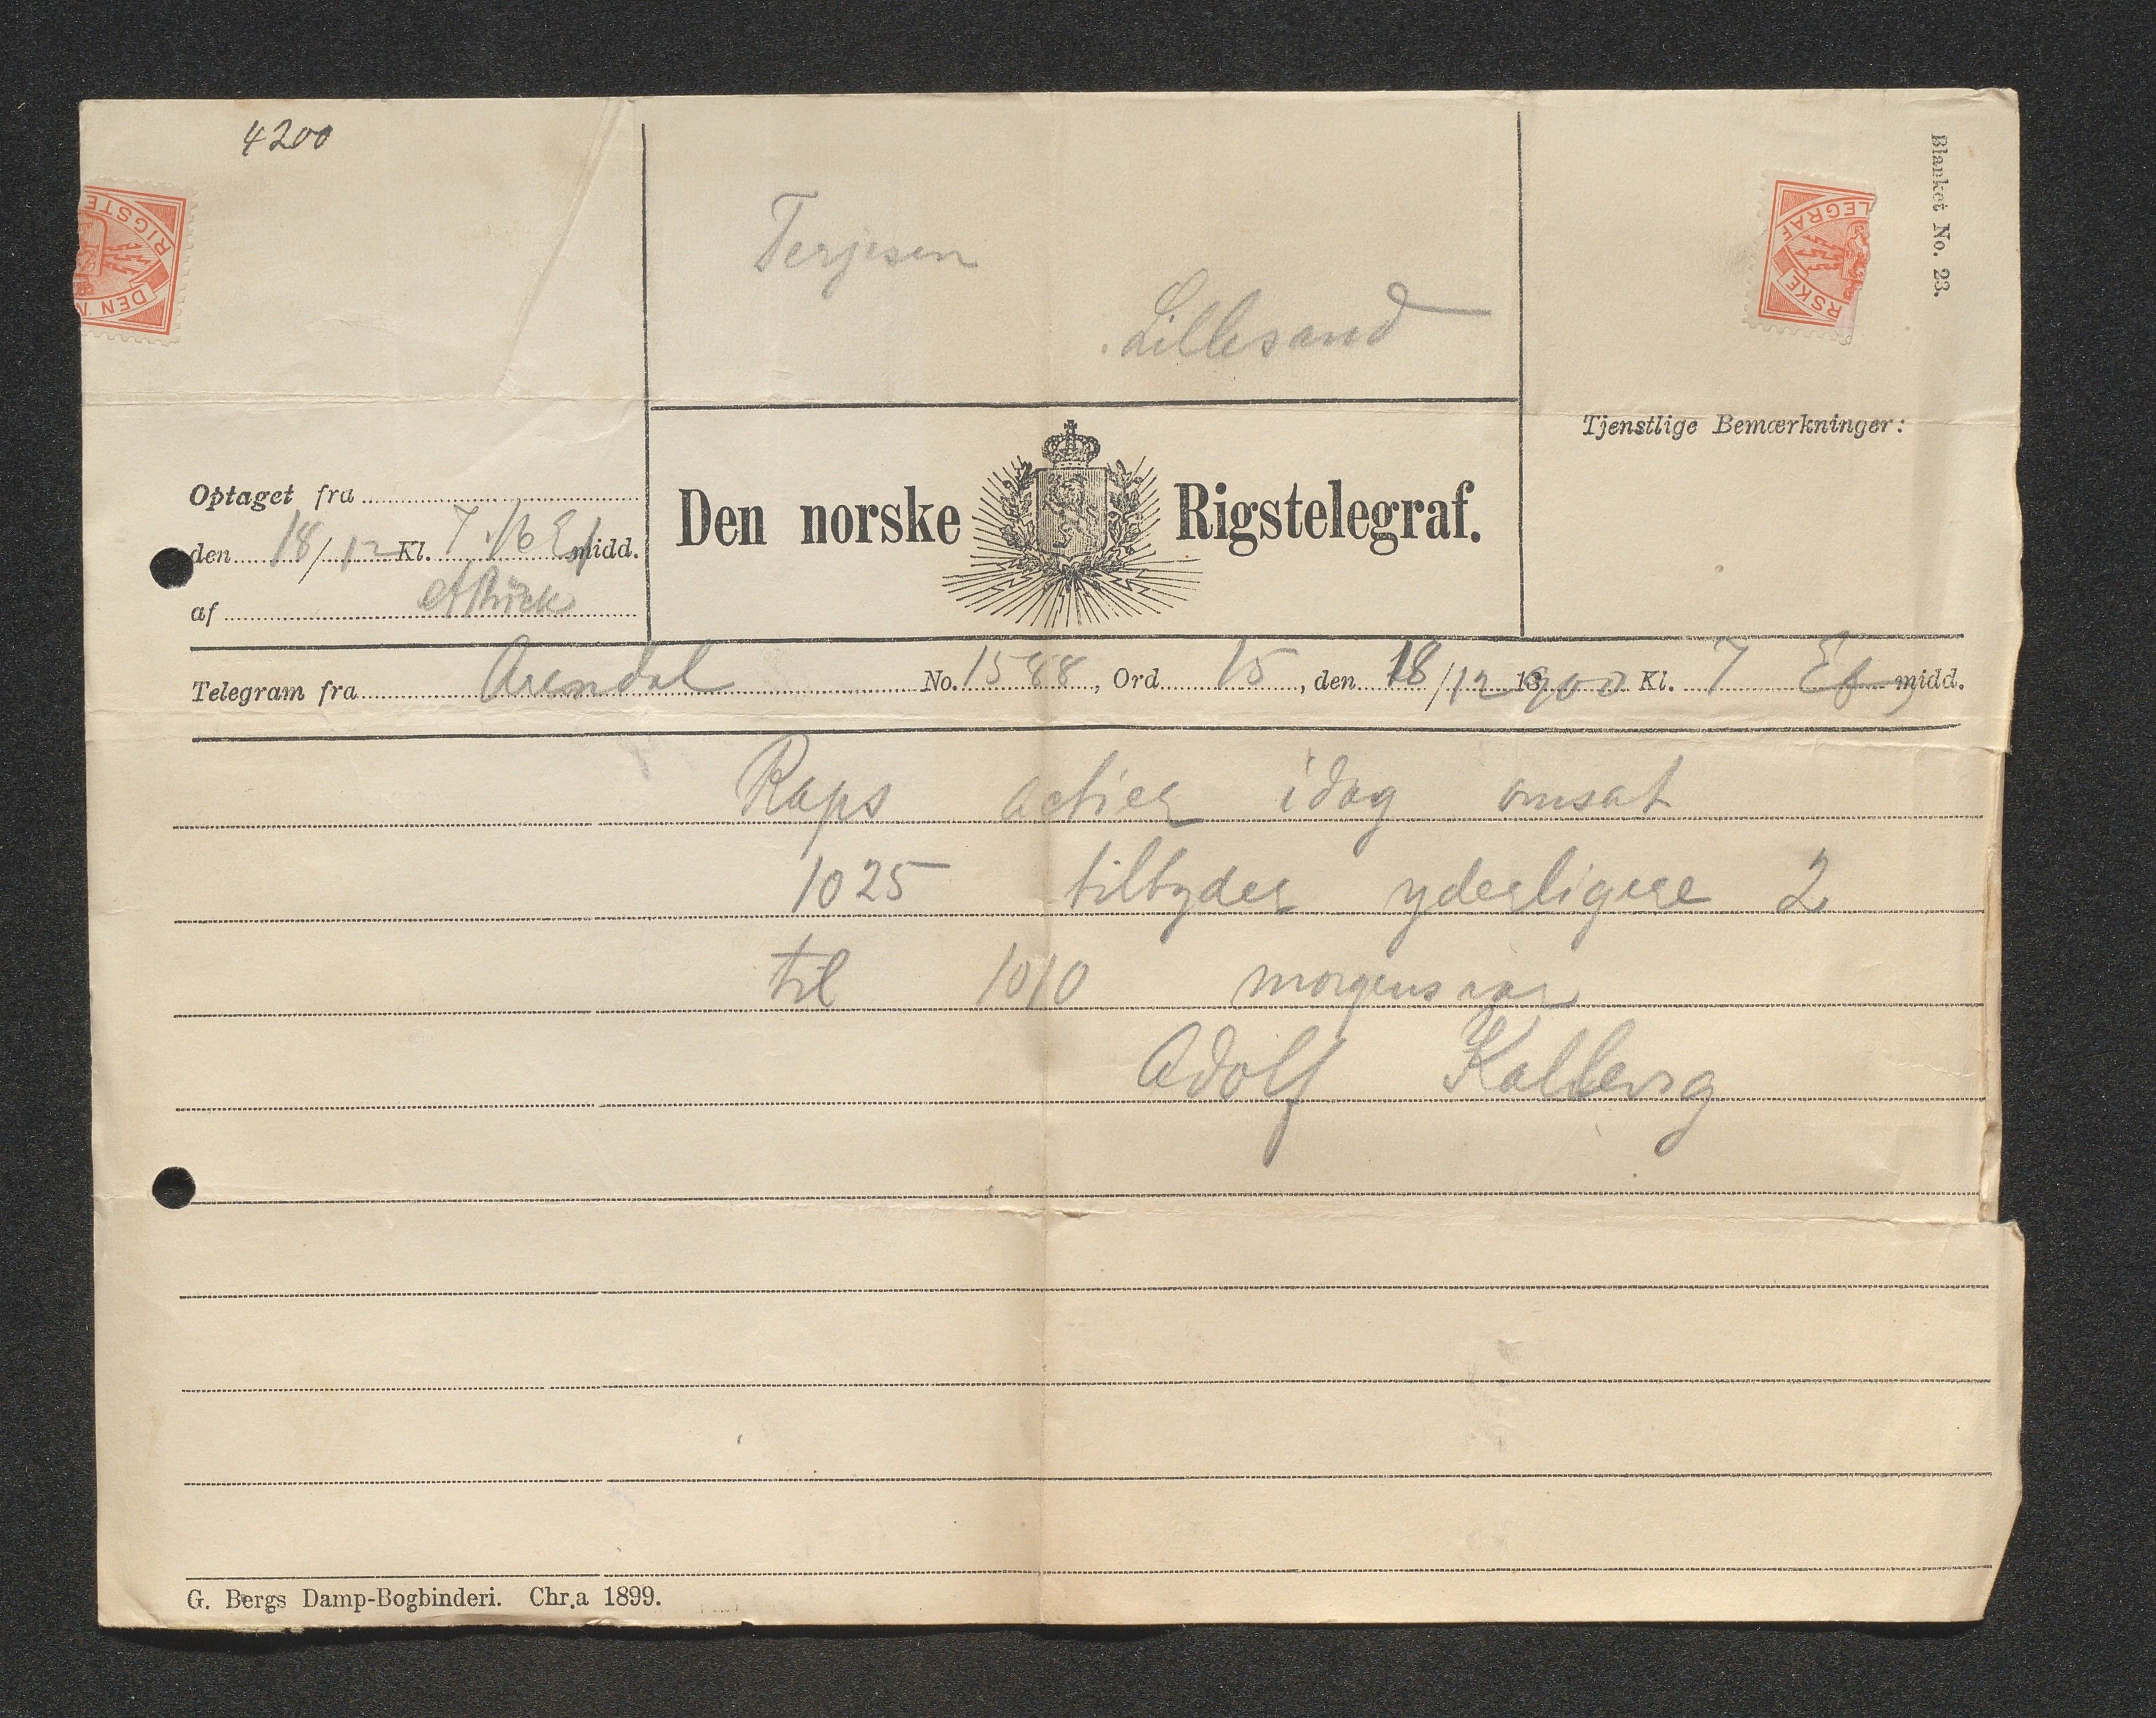 4200
Blanket No. 23.
RIGSTE
DEN N
LEGRAF
RSKE
Terjesen
Lillesand
Tjenstlige Bemærkninger:
Optaget fra
den 18/12 Kl. 7.16 Efmidd.
af
Den norske Rigstelegraf.
Telegram fra Arendal No. 1588, Ord 15, den 18/12 1900 Kl. 7 Ef midd.
Raps actier idag omsat
1025 tilbyder yderligere 2
til 1010 morgensvar
Adolf Kallevig
G. Bergs Damp-Bogbinderi. Chr.a 1899.